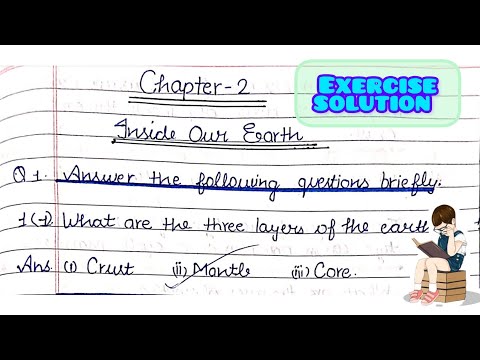 Chapter-2
EXERCISE
SOLUTION
Inside Our Earth
Q 1. Answer the following questions briefly.
1(1) What are the three layers of the earth
Ans. (i) Crust (ii) Mantle (iii) Core.